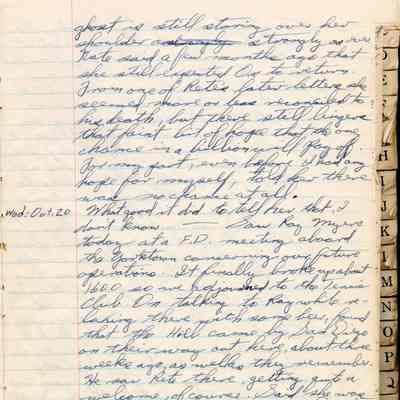 ghost is still staring over her
shoulder strongly as ever
Kate said a few months ago that
she still expected Oz to return.
From one of Kate's later letters she
seemed more or less reconciled to
his death, but there still lingers
that faint bit of hope that the one
chance in a billion will pay off.
For my part, even before I had any
hope for myself, I told her there
was no chance at all.
Wed. Oct. 20 What good it did to tell her that, I
don't know. — Saw Ray Myers
today at a F.D. meeting aboard
the Yorktown concerning our future
operations. It finally broke up about
1600 so we adjourned to the Tennis
Club. On talking to Ray while re-
laxing there with some beer, found
that the Hdl came by San Diego
on their way out here, about three
weeks ago, as well as they remember.
He saw Kate there, getting quite a
welcome, of course. Said she was
D
E
F
G
H
I
J
K
L
M
N
O
P
Q